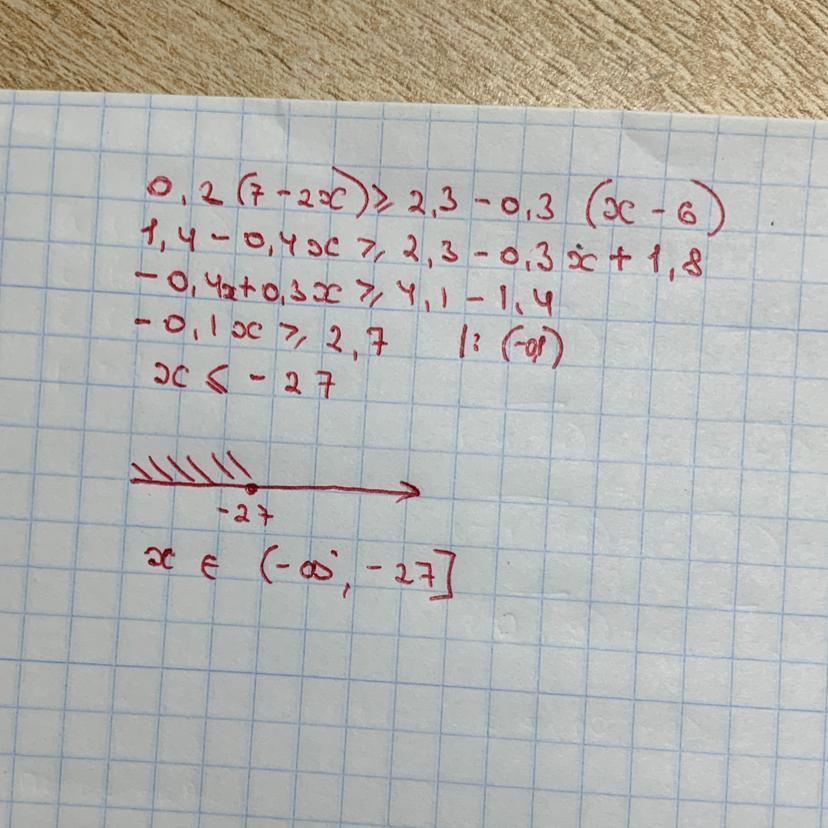 0,2(7-2x)⩾2,3-0,3(x-6)
1,4-0,4x⩾2,3-0,3x+1,8
-0,4x+0,3x⩾4,1-1,4
-0,1x⩾2,7 |:(-0,1)
x⩽-27
-27
x∈(-∞,-27]